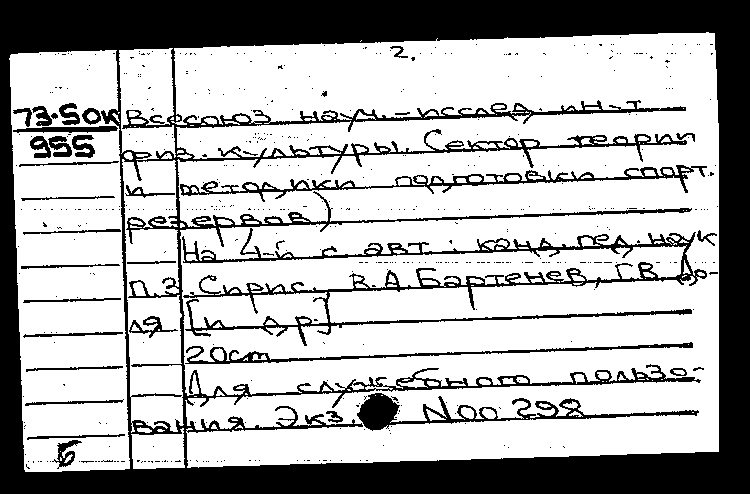 2.
73-50К Всесоюз науч.-исслед. ин-т
955 физ. культуры. Сектор теории
и методики подготовки спорт.
резервов)
На 4-й с авт.: канд. пед. наук
П.З. Сирис, В.А. Бартенев, Г.В. До-
ля [и др.].
20cm
Для служебного пользо-
вания. Экз. №00298
Б